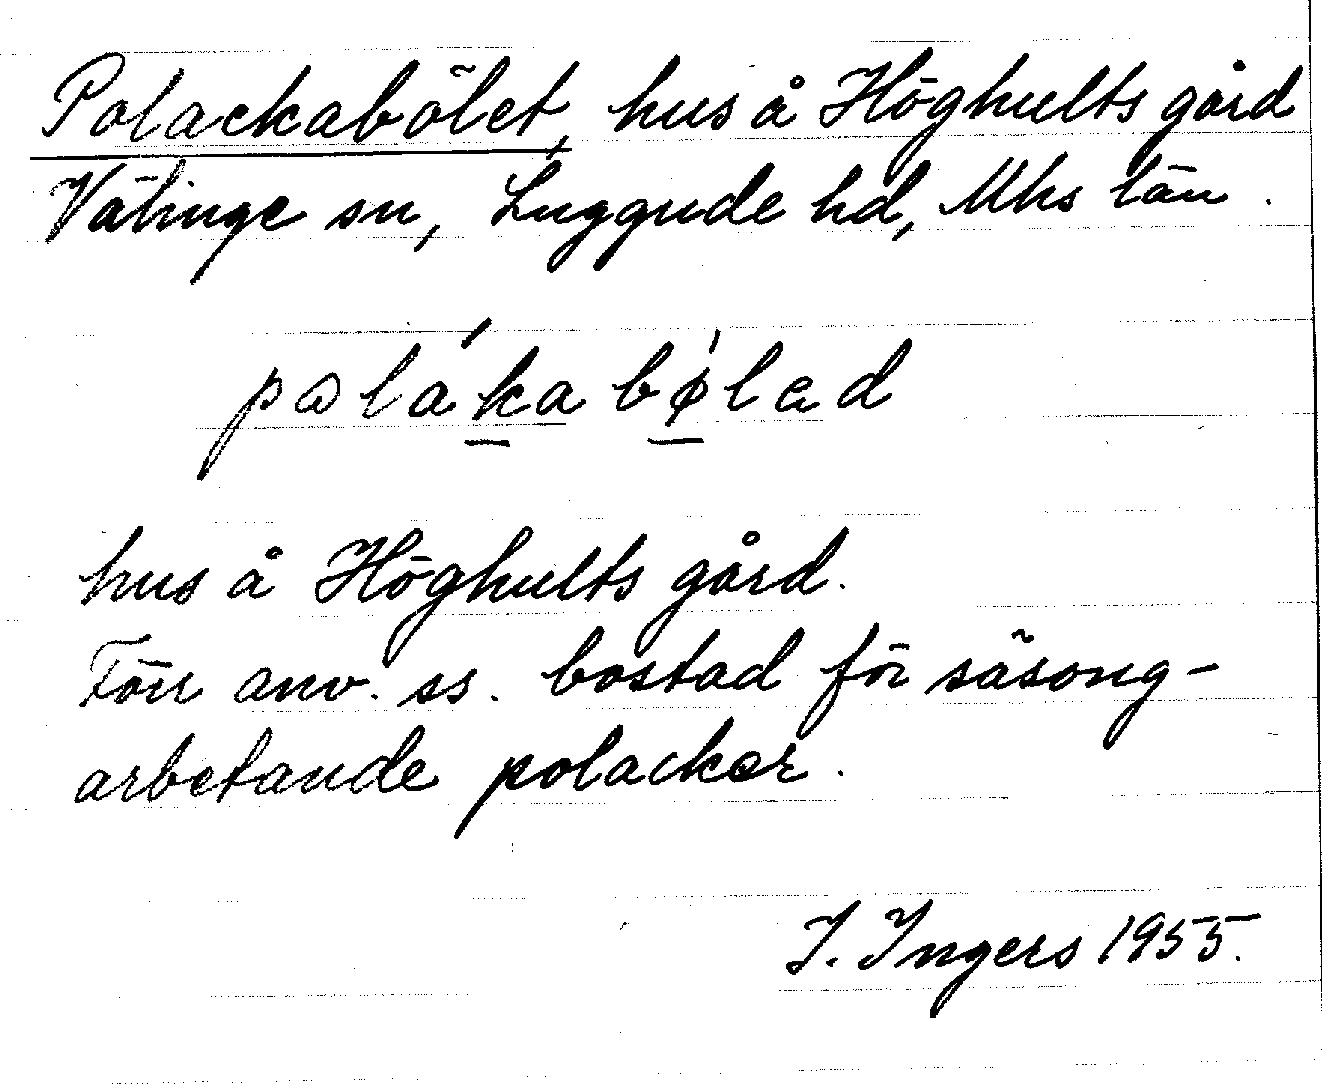 Polackabölet, hus å Höghults gård
Välinge sn, Luggude hd, Mhs län.
pɷlákabø̍ləd
hus å Höghults gård.
Förr anv. ss. bostad för säsong-
arbetande polacker.
I. Ingers 1955.